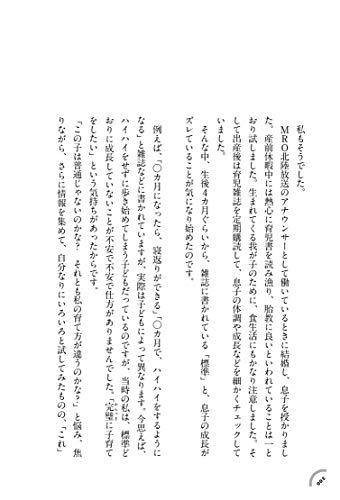 私もそうでした。
MRO北陸放送のアナウンサーとして働いているときに結婚し、息子を授かりまし
た。産前休暇中には熱心に育児書を読み漁り、胎教に良いといわれていることは一と
おり試しました。生まれてくる我が子のために、食生活にもかなり注意しました。そ
して出産後は育児雑誌を定期購読して、息子の体調や成長などを細かくチェックして
いました。
そんな中、生後4カ月ぐらいから、雑誌に書かれている「標準」と、息子の成長が
ズレていることが気になり始めたのです。
例えば、「〇カ月になったら、寝返りができる」「〇カ月で、ハイハイをするように
なる」と雑誌などに書かれていますが、実際は子どもによって異なります。今思えば、
ハイハイをせずに歩き始めてしまう子どもだっているのですが、当時の私は、標準ど
おりに成長していないことが不安で不安で仕方がありませんでした。「完璧に子育て
をしたい」という気持ちがあったからです。
「この子は普通じゃないのかな? それとも私の育て方が違うのかな?」と悩み、焦
りながら、さらに情報を集めて、自分なりにいろいろと試してみたものの、「これ」